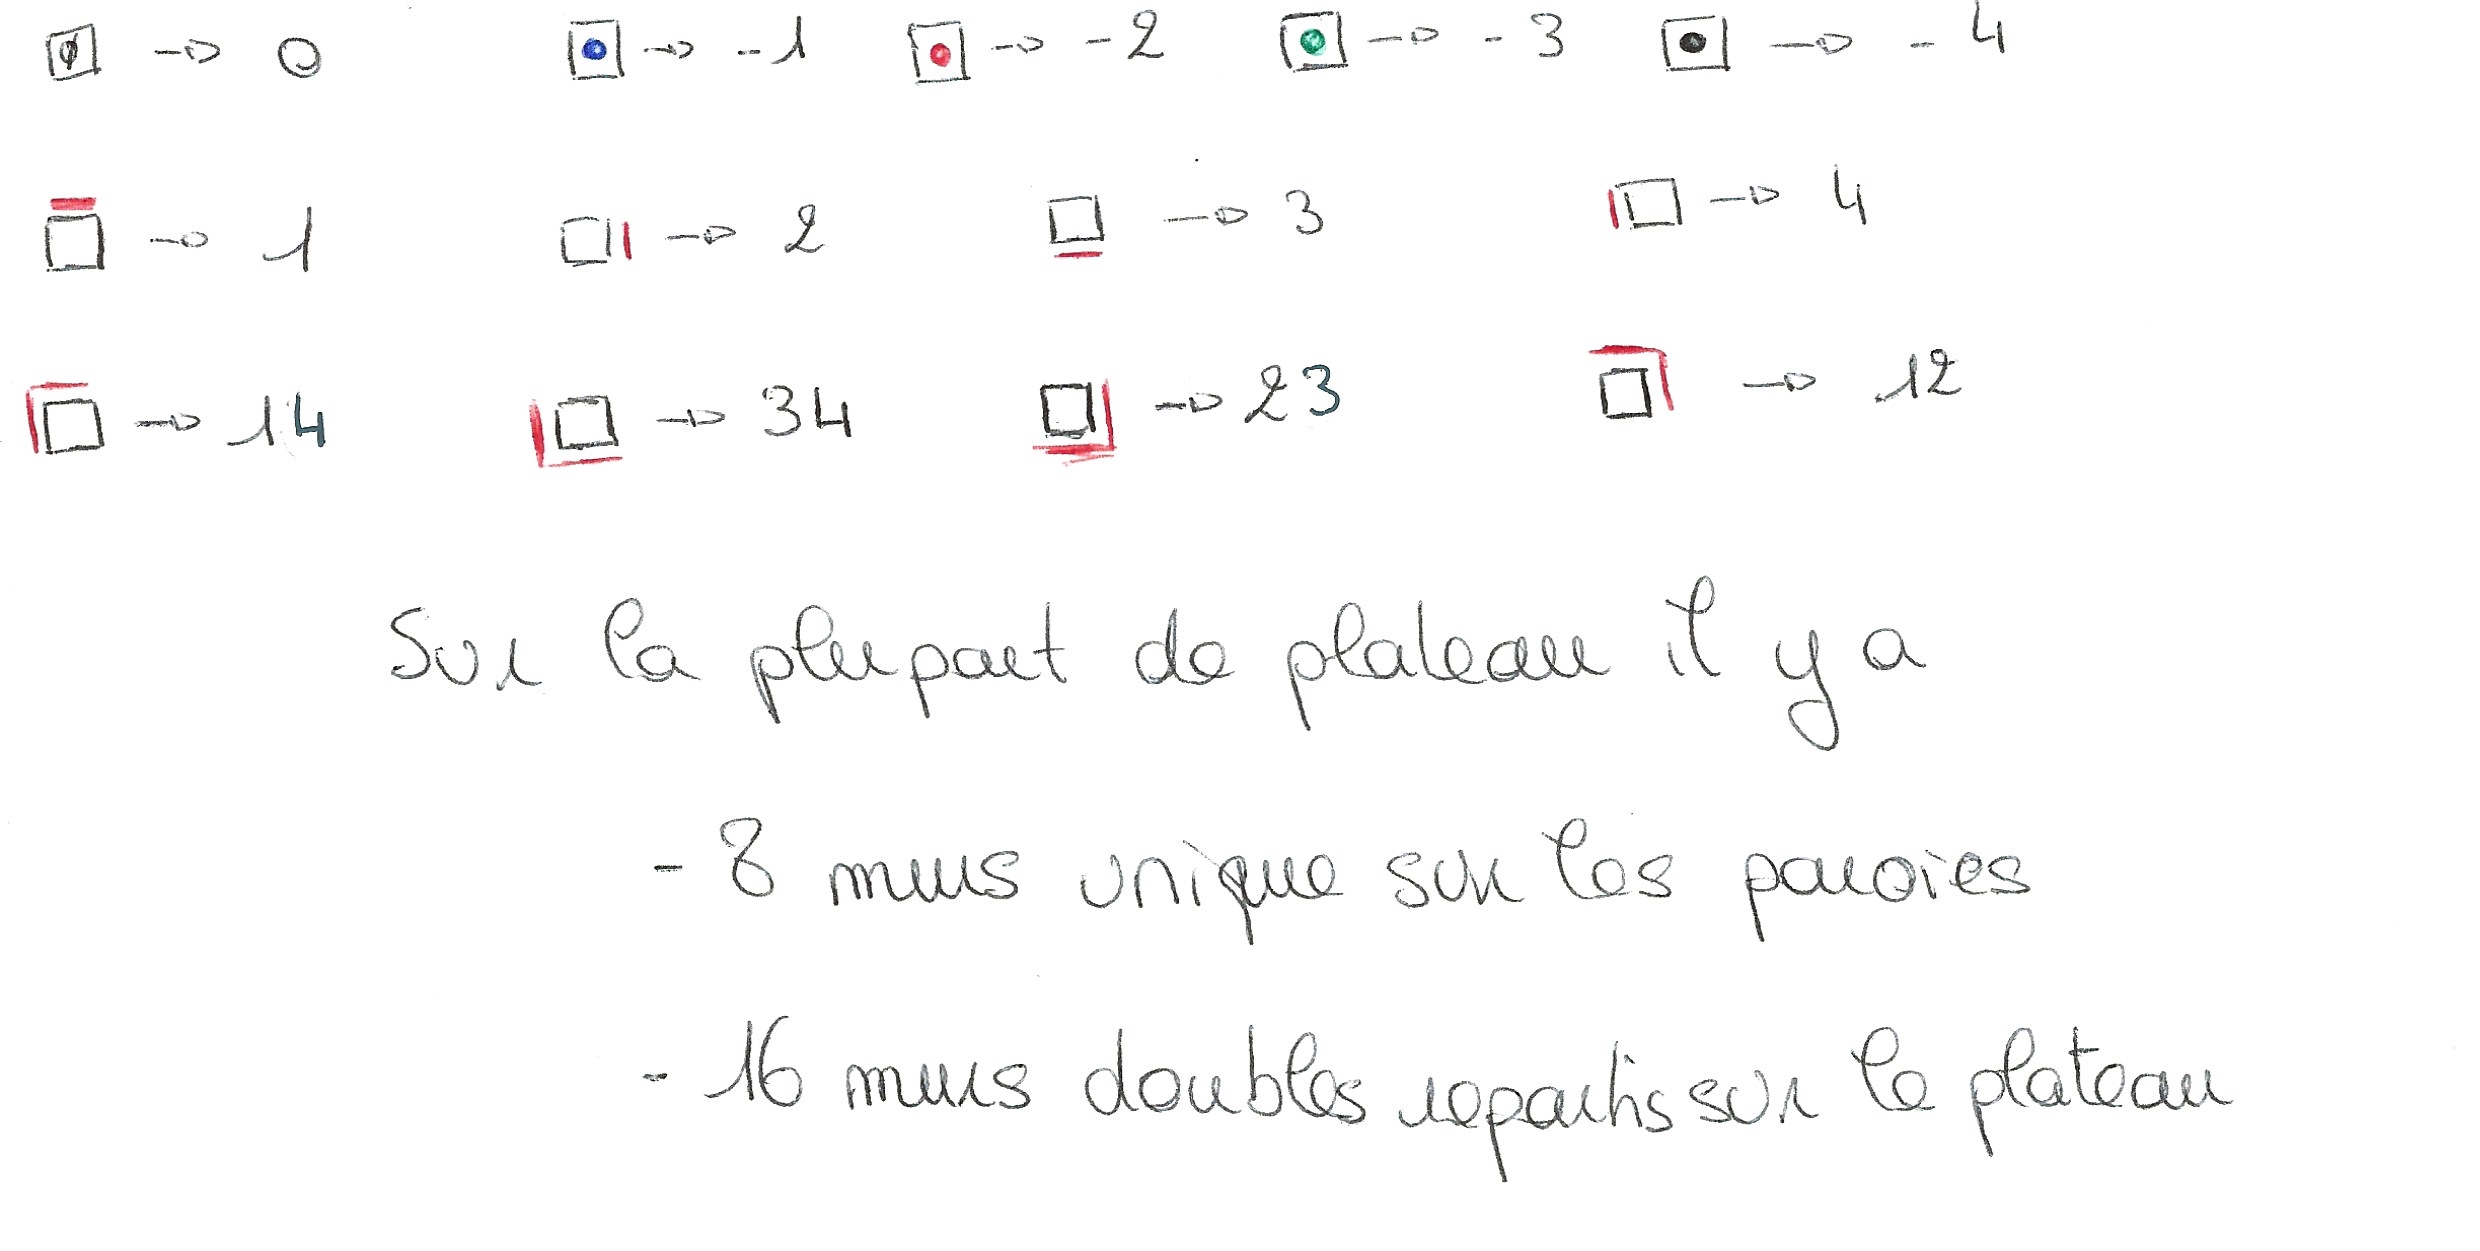 ∅ → 0 → -1 → -2 → -3 → -4
→ 1 → 2 → 3 → 4
→ 14 → 34 → 23 → 12
Sur la plupart de plateau il y a
- 8 murs unique sur les paroies
- 16 murs doubles repartis sur le plateau